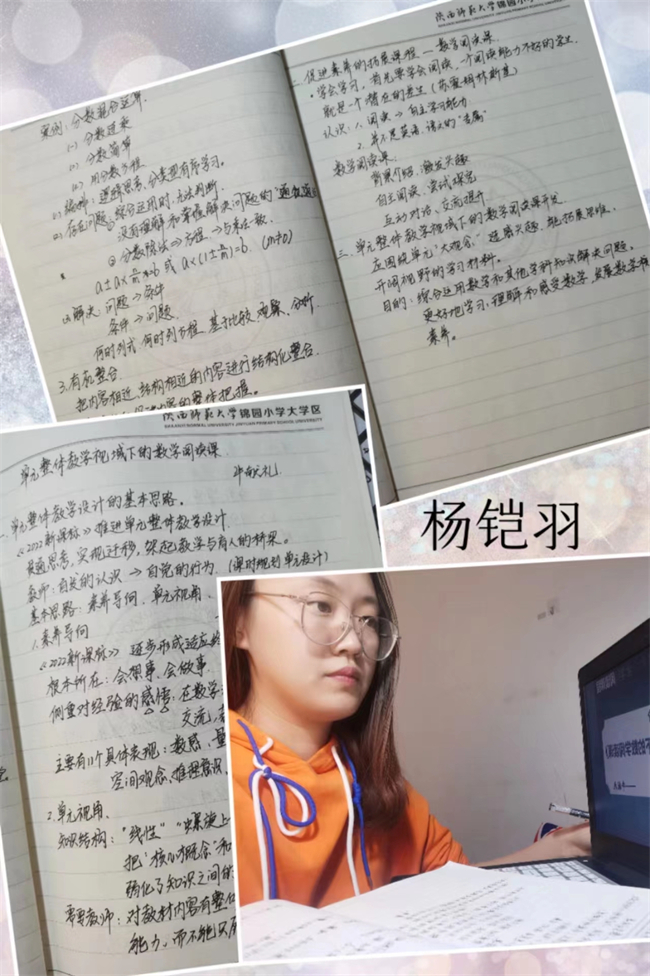 案例：分数混合运算.
(1) 分数连乘
(2) 分数简算
(3) 用分数方程
没有理解和掌握解决问题的"通性通
⊙分数除法⇒方程→
a±a×n/m=b 或 a×(1±n/m)=b. (m≠0)
(3)解决 问题→条件
条件→问题.
何时列式 何时列方程 基于比较、观察、分析
3.有机整合.
把内容相近、结构相近的内容进行结构化整合.
陕西师范大学锦园小学
促进素养的拓展课程——数学阅读课.
·学会学习，首先要学会阅读，一个阅读能力不好的学生
就是一个潜在的差生 (苏霍姆林斯基)
认识：1. 阅读→自主学习能力
2. 并不是英语、语文的"专属"
数学阅读课.
背景介绍，激发兴趣
自主阅读，尝试探究
互动对话、交流提升
三、单元整体教学视域下的数学阅读课开发
应围绕单元"大观念"
开阔视野的学习材料.
目的：综合运用数学和其他学科知识解决问题。
更好地学习、理解和感受数学，发展数学
素养。
陕西师范大学锦园小学大学区
单元整体教学视域下的数学阅读课
一.单元整体教学设计的基本思路。
《2022新课标》推进单元整体教学设计
实现迁移，架起教学与育人的桥梁。
教师：自发的认识 → 自觉的行为. (课时规划单元设计)
基本思路：素养导向. 单元视角.
1.素养导向
《2022新课标》 逐步形成适应
根本所在：会想事、会做事
侧重对经验的感悟，在数学
交流，
主要有11个具体表现：数感、量
空间观念、推理意识.
2.单元视角.
知识结构："线性" "螺旋上
把"核心概念"和
弱化了知识之间的
需要教师：对教材内容有整体
能力，而不能只
杨铠羽